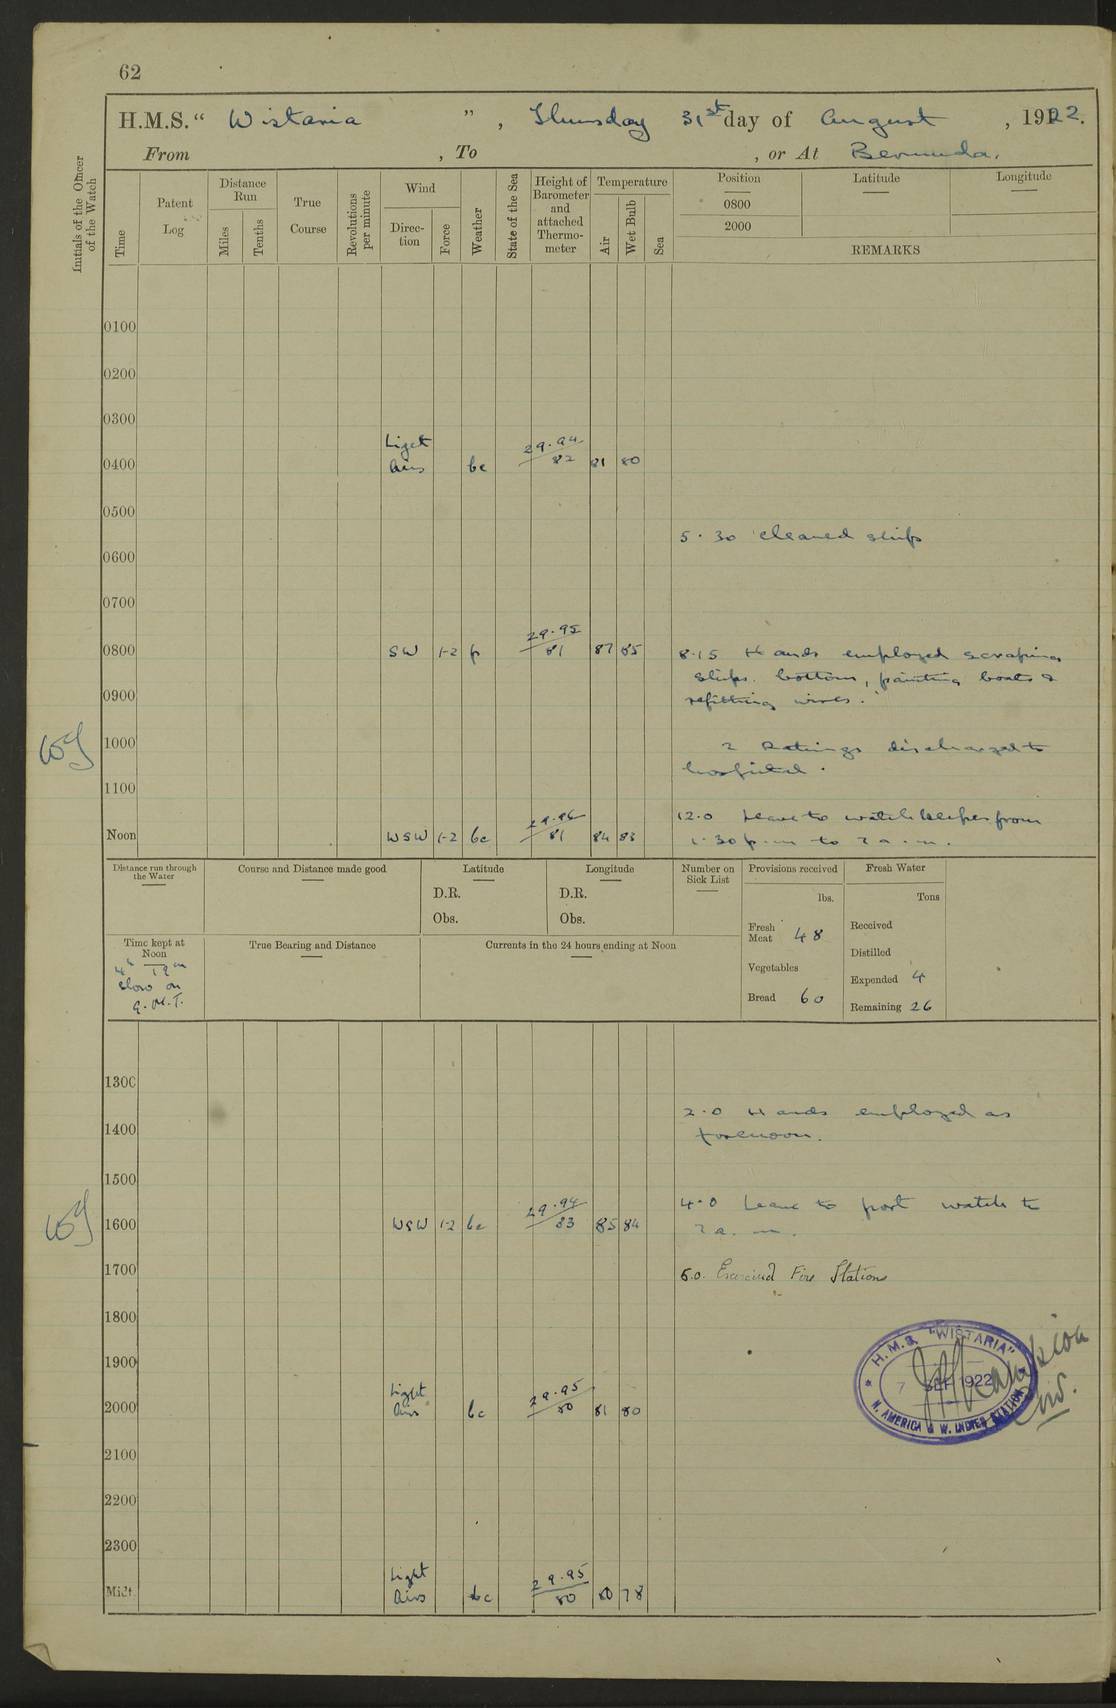 62
H.M.S. “ Wistaria ” , Thursday 31st day of August , 1922.
From , To , or At Bermuda.
Initials of the Officer of the Watch
Time
Patent Log
Distance Run
Miles
Tenths
True Course
Revolutions per minute
Wind
Direc-tion
Force
Weather
State of the Sea
Height of Barometer and attached Thermo-meter
Temperature
Air
Wet Bulb
Sea
Position
Latitude
Longitude
0800
2000
REMARKS
0100
0200
0300
0400 Light Airs bc 29.94 82 81 80
0500
5.30 Cleaned ship
0600
0700
0800 SW 1-2 p 29.95 81 87 85 8.15 Hands employed scraping
ships bottom, painting boats &
0900 refitting wires.
1000 2 Ratings discharged to
hospital.
1100
12.0 Leave to watchkeepers from
Noon WSW 1-2 bc 29.96 81 84 83 1.30 p.m to 7 a.m.
Distance run through the Water
Course and Distance made good
Latitude
D.R.
Obs.
Longitude
D.R.
Obs.
Number on Sick List
Provisions received
lbs.
Fresh Meat 48
Vegetables
Bread 60
Fresh Water
Tons
Received
Distilled
Expended 4
Remaining 26
Time kept at Noon
4h 19m
slow on
G.M.T.
True Bearing and Distance
Currents in the 24 hours ending at Noon
1300
2.0 Hands employed as
1400 forenoon.
1500
4.0 Leave to port watch to
1600 WSW 1-2 bc 29.94 83 85 84 7 a.m.
1700 5.0. Exercised Fire Stations
1800
1900
2000 Light Airs bc 29.95 80 81 80
2100
2200
2300
Midt. Light Airs bc 29.95 80 80 78
H.M.S. "WISTARIA"
7 SEP 1922
N. AMERICA & W. INDIES STATION